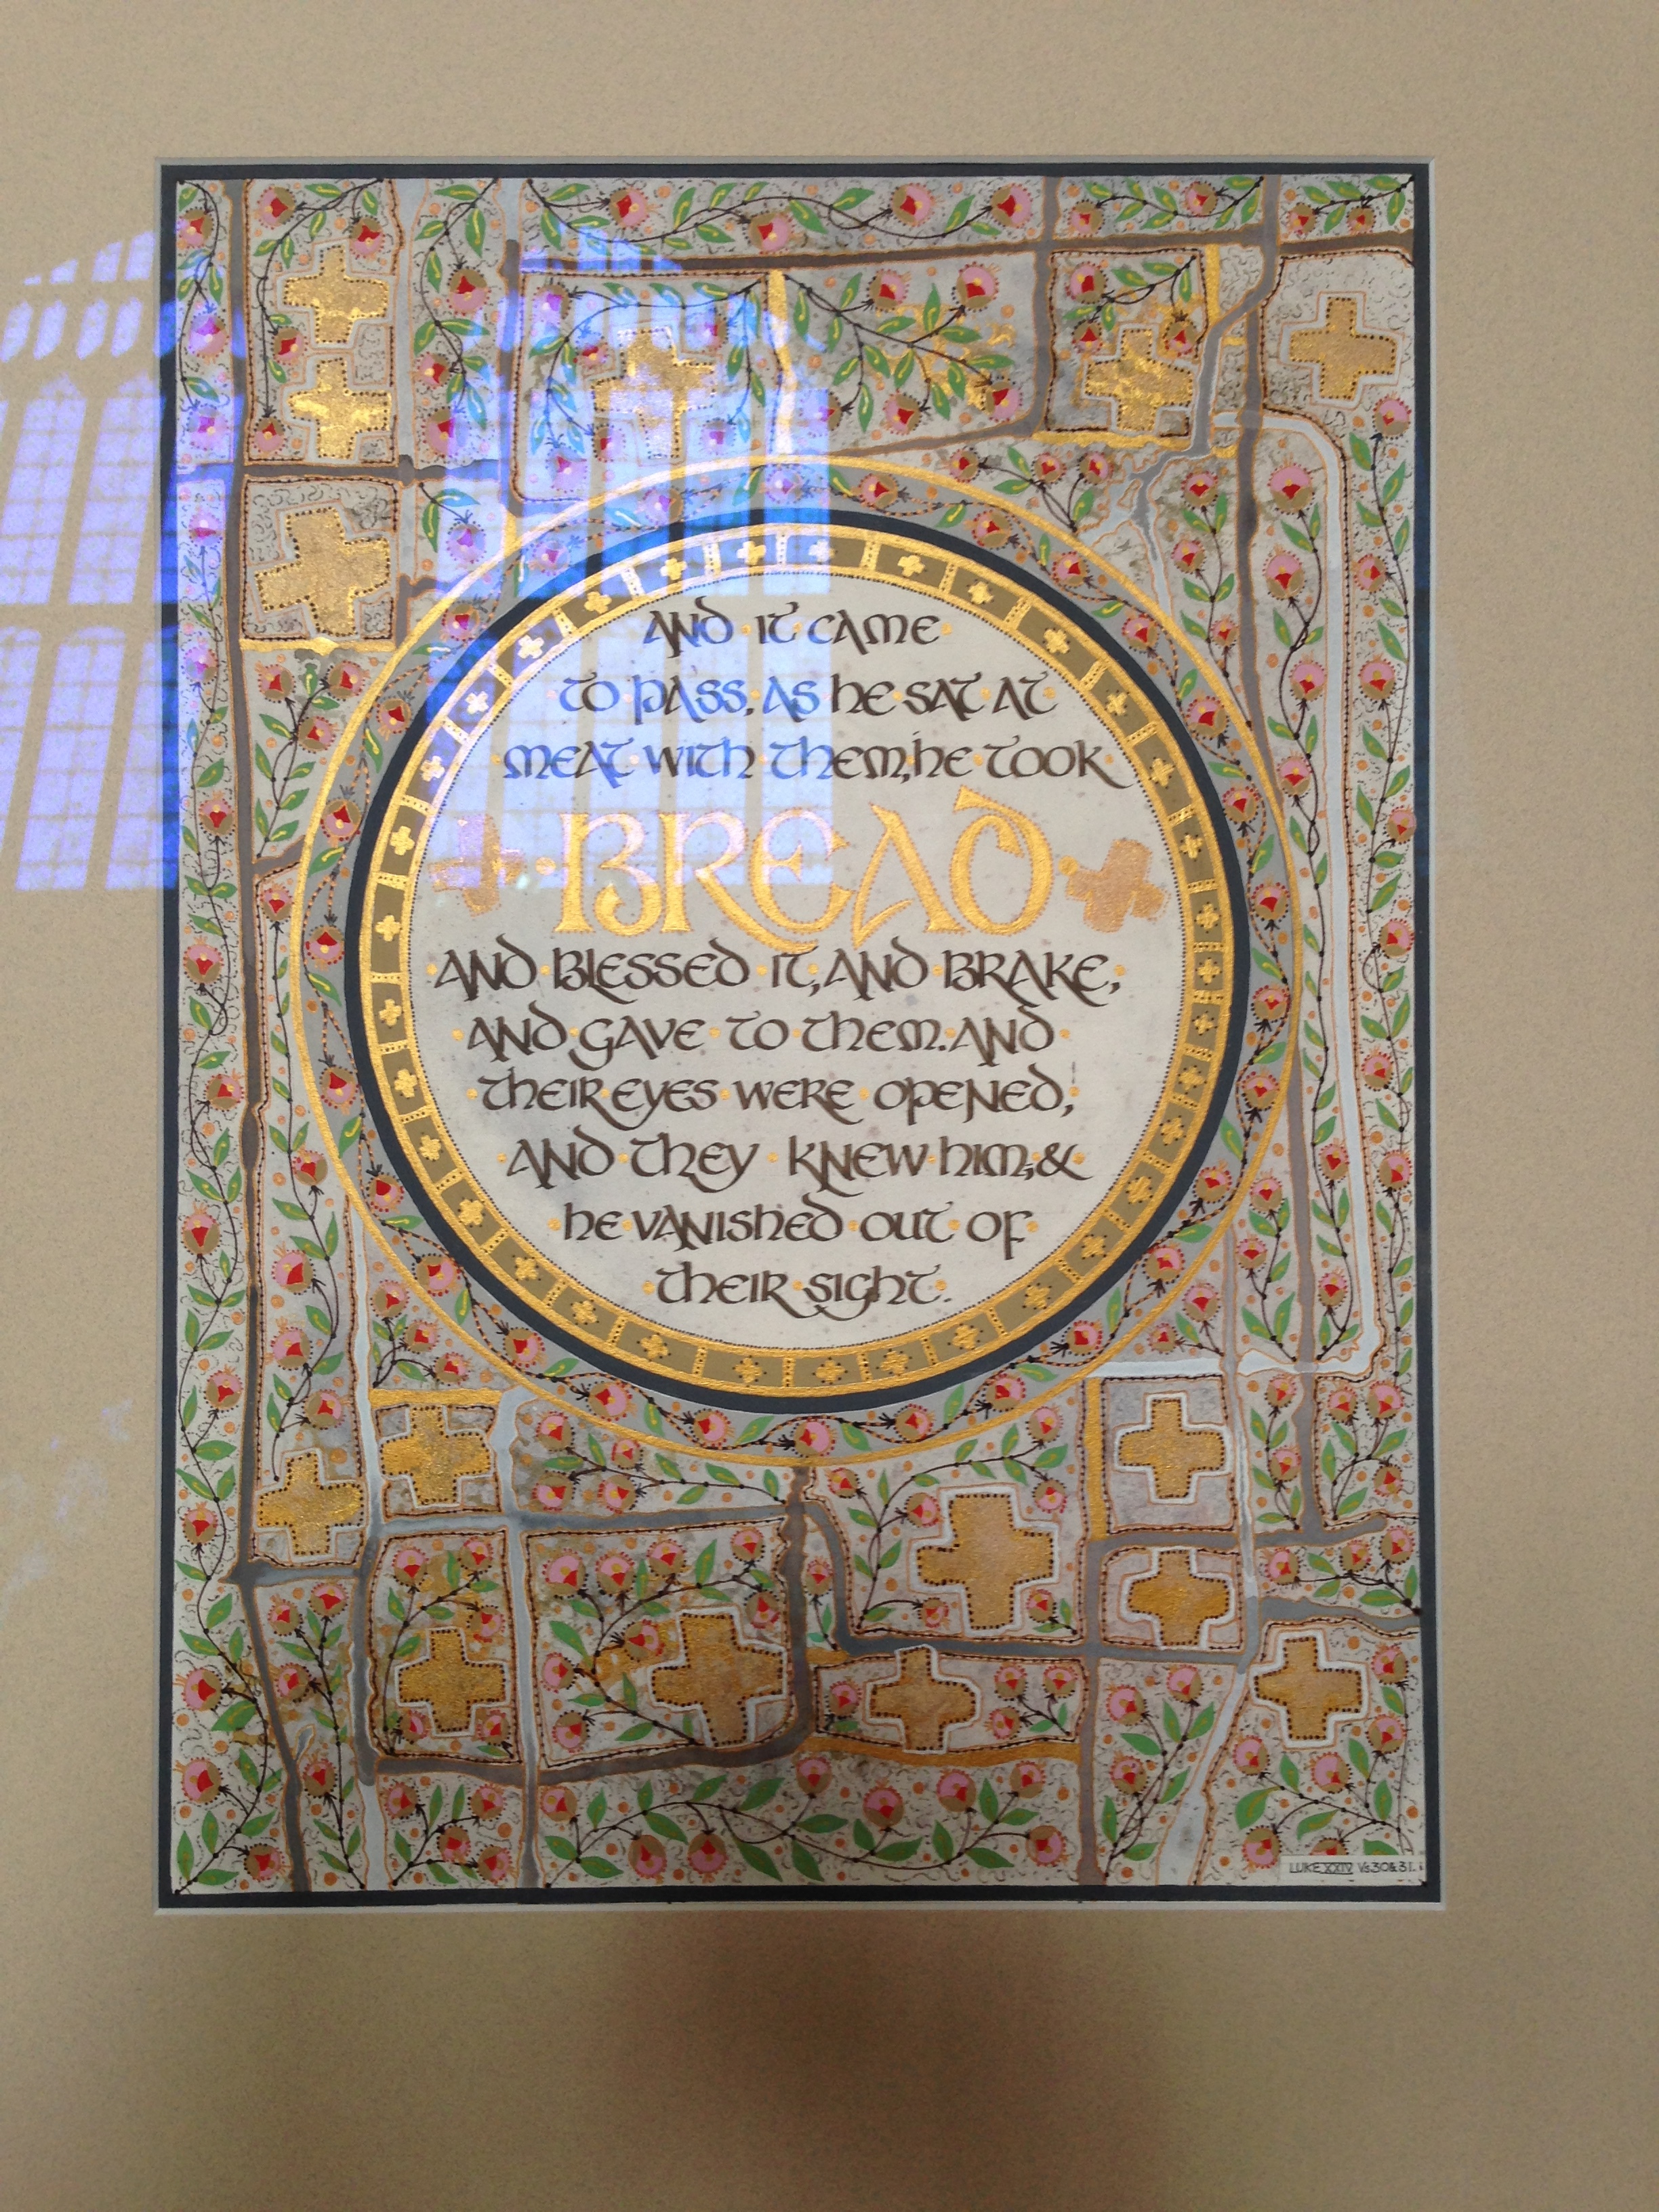 AND IT CAME
TO PASS, AS HE SAT AT
MEAT WITH THEM, HE TOOK
BREAD
AND BLESSED IT, AND BRAKE,
AND GAVE TO THEM. AND
THEIR EYES WERE OPENED,
AND THEY KNEW HIM; &
HE VANISHED OUT OF
THEIR SIGHT.
LUKE XXIV Vs 30 & 31.